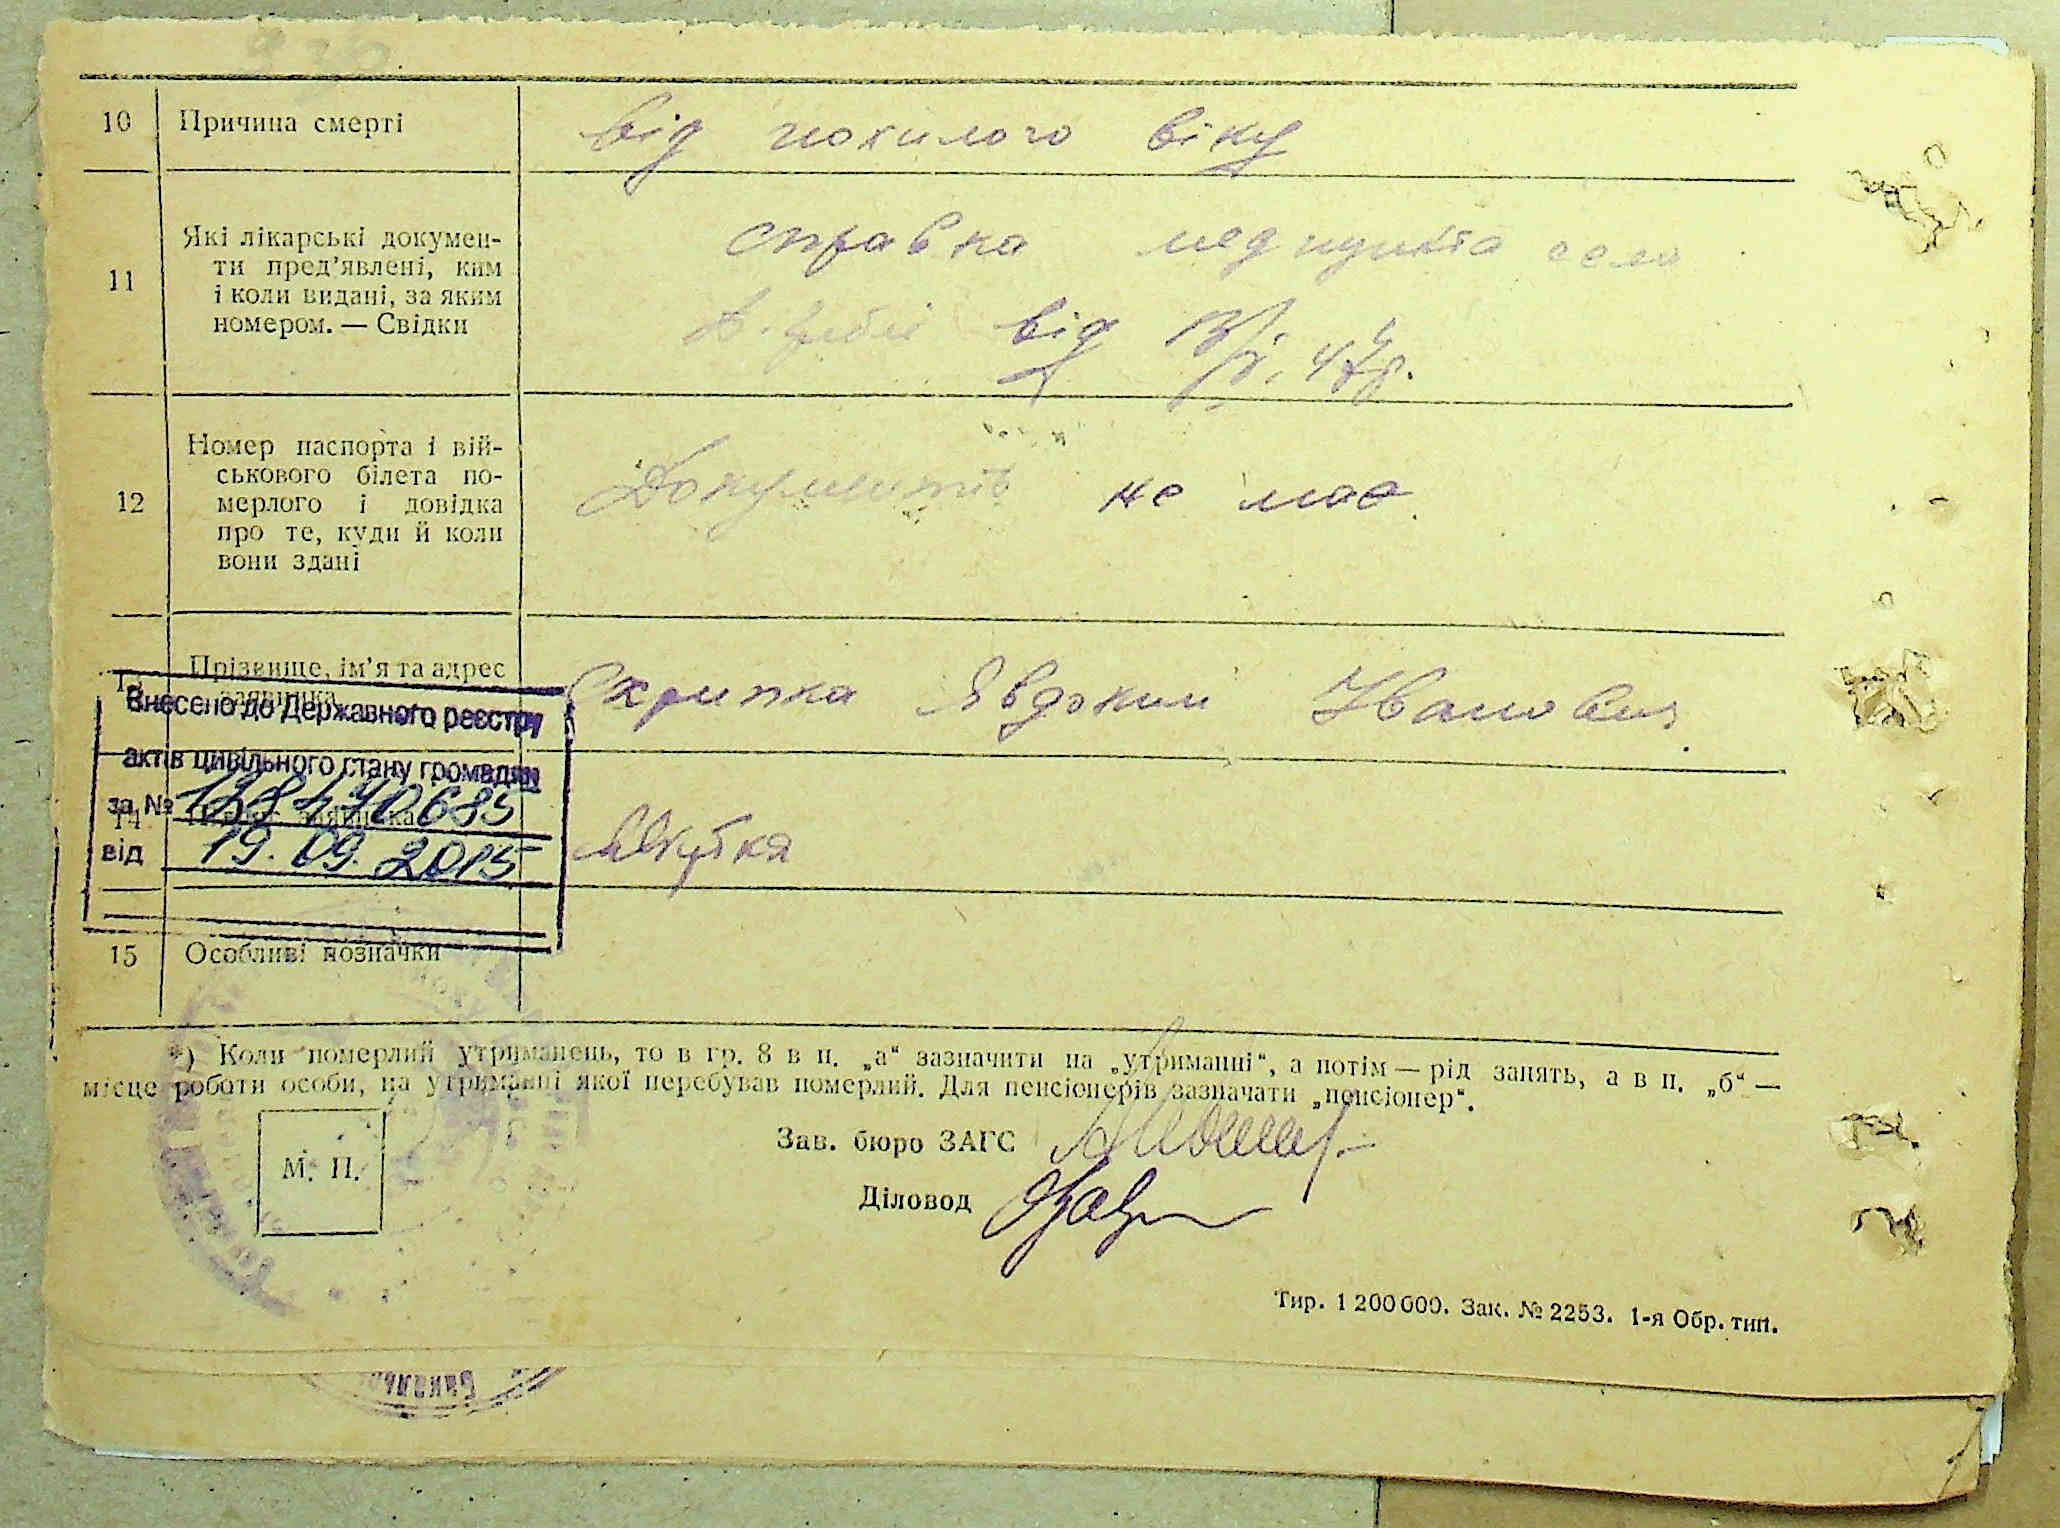 10 Причина смерті від похилого віку
11 Які лікарські докумен-
ти пред'явлені, ким
і коли видані, за яким
номером. — Свідки
справка медпункта села
від
12 Номер паспорта і вій-
ськового білета по-
мерлого і довідка
про те, куди й коли
вони здані
Документів не має
13 Прізвище, ім'я та адрес
заявника
Скрипка Явдоким Іванович
Внесено до Державного реєстру
актів цивільного стану громадян
за № 128470685
від 19.09.2015
14 Підпис заявника
15 Особливі позначки
*) Коли померлий утриманець, то в гр. 8 в п. „а“ зазначити на „утриманні“, а потім — рід занять, а в п. „б“ —
місце роботи особи, на утриманні якої перебував померлий. Для пенсіонерів зазначати „пенсіонер“.
М. П.
Зав. бюро ЗАГС
Діловод
Тир. 1 200 000. Зак. № 2253. 1-я Обр. тип.